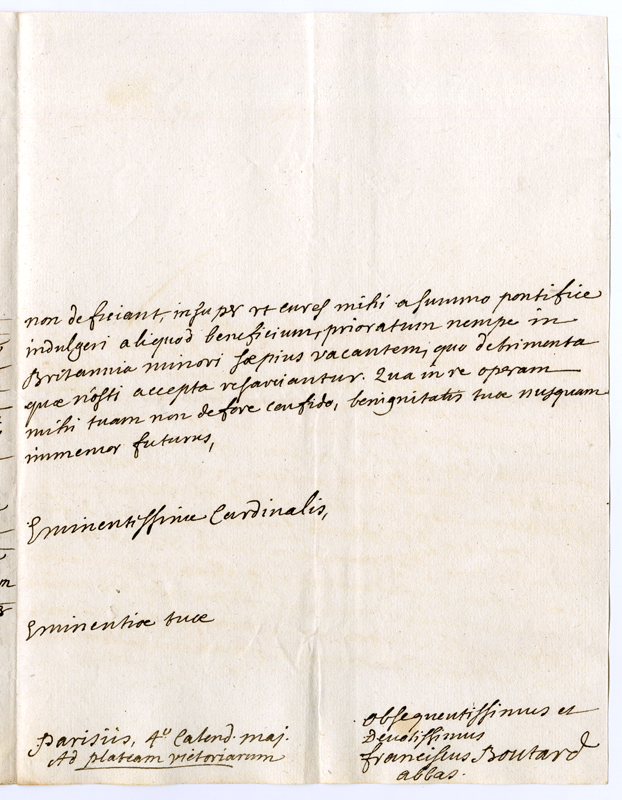 non deficiant, insuper vt cures mihi a summo pontifice
indulgeri aliquod beneficium, prioratum nempe in
Britannia minori sæpius vacantem, quo detrimenta
quæ nôsti accepta resarciantur. Qua in re operam
mihi tuam non defore confido, benignitatis tuæ nusquam
immemor futurus,
Eminentissime Cardinalis,
Eminentiæ tuæ
obsequentissimus et
Devotissimus
franciscus Boutard
abbas.
Parisiis, 4º Calend. maj.
Ad plateam victoriarum